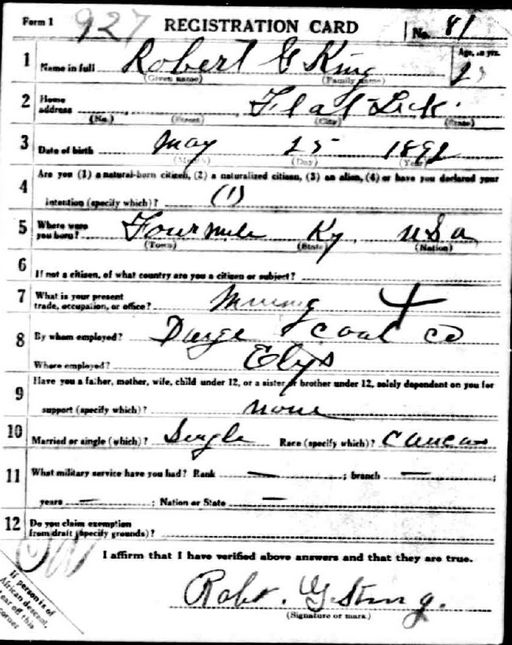 Form 1 927 REGISTRATION CARD No. 81
1 Name in full Robert G King Age, in yrs.
(Given name) (Family name)
2 Home address Flat Lick
(No.) (Street) (City) (State)
3 Date of birth May 25 1892
(Month) (Day) (Year)
4 Are you (1) a natural-born citizen, (2) a naturalized citizen, (3) an alien, (4) or have you declared your
intention (specify which)? (1)
5 Where were you born? Fourmile Ky USA
(Town) (State) (Nation)
6 If not a citizen, of what country are you a citizen or subject?
7 What is your present trade, occupation, or office? Mining
8 By whom employed? coal co
Where employed? Elys
9 Have you a father, mother, wife, child under 12, or a sister or brother under 12, solely dependent on you for
support (specify which)? none
10 Married or single (which)? Single Race (specify which)? Caucas
11 What military service have you had? Rank — ; branch — ;
years — ; Nation or State —
12 Do you claim exemption from draft (specify grounds)?
I affirm that I have verified above answers and that they are true.
If person is of
African descent,
tear off this
corner
Robt. G
(Signature or mark)